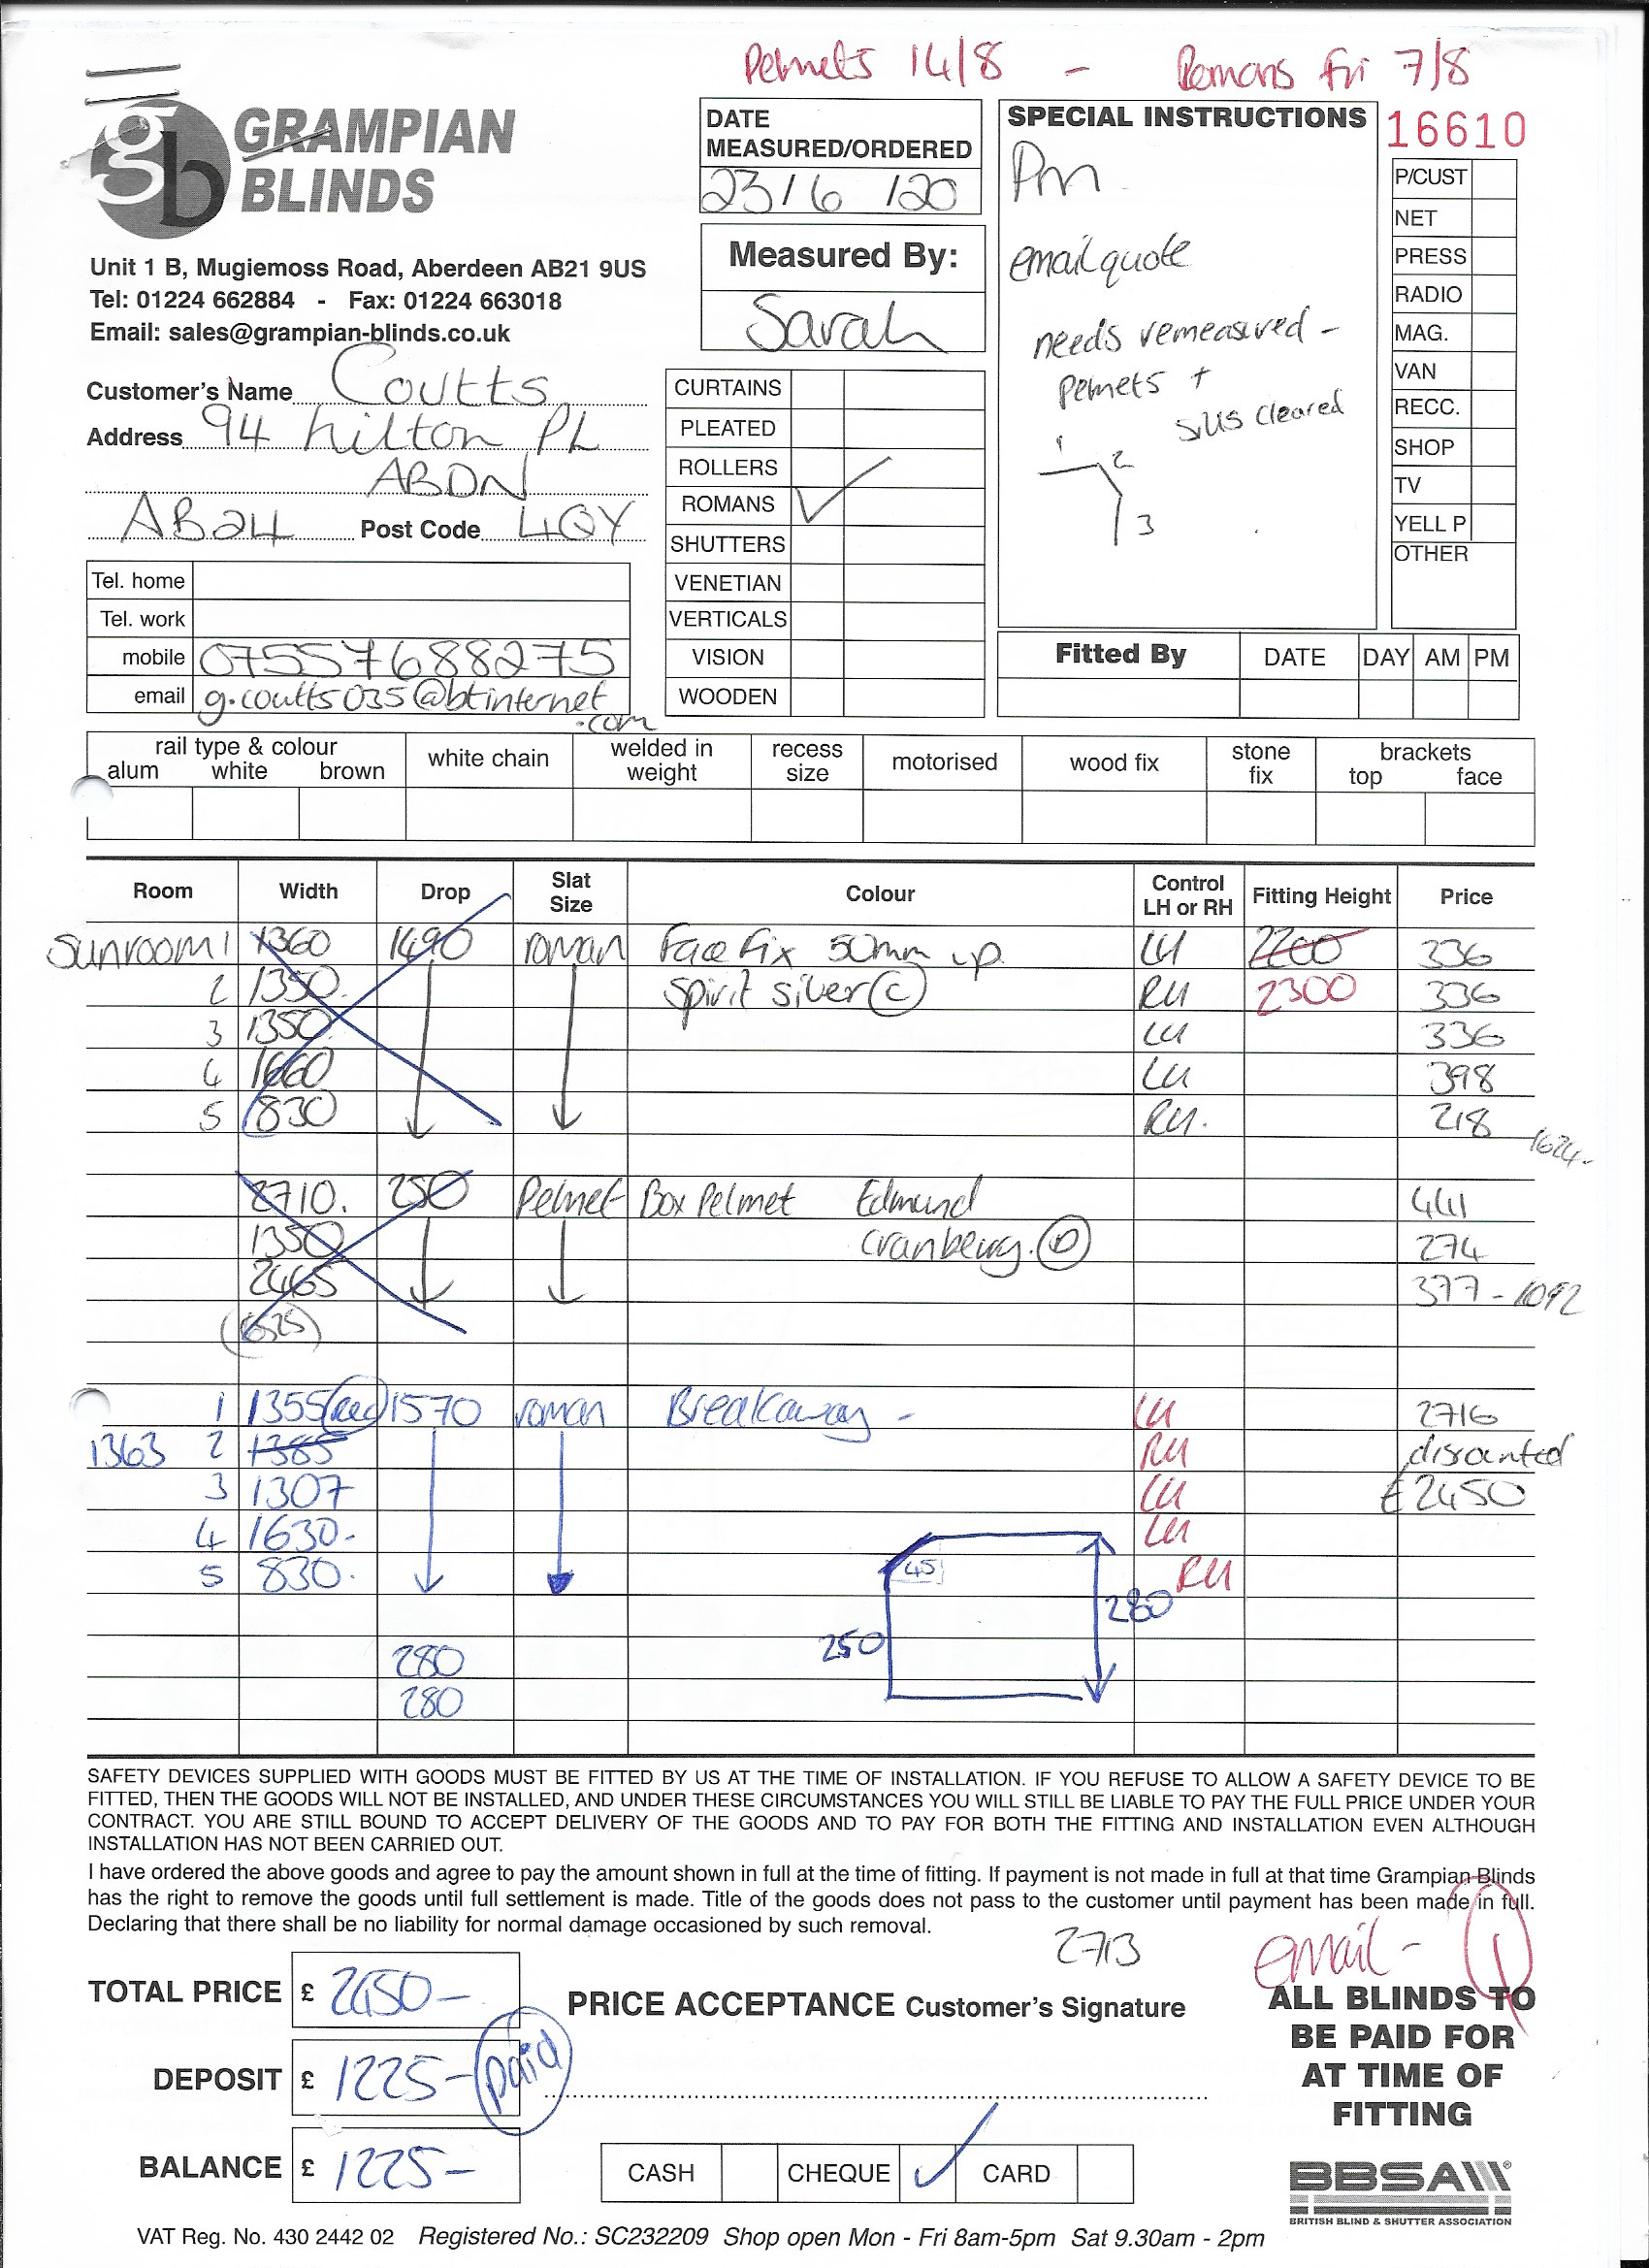 Pelmets 14/8 - Romans Fri 7/8
gb GRAMPIAN BLINDS
Unit 1 B, Mugiemoss Road, Aberdeen AB21 9US
Tel: 01224 662884 - Fax: 01224 663018
Email: sales@grampian-blinds.co.uk
Customer's Name Coutts
Address 94 hilton PL
ABDN
AB24 Post Code 4QY
Tel. home
Tel. work
mobile 07557688275
email g.coutts035@btinternet
.com
DATE
MEASURED/ORDERED
23/6/20
Measured By:
Sarah
CURTAINS
PLEATED
ROLLERS
ROMANS ✓
SHUTTERS
VENETIAN
VERTICALS
VISION
WOODEN
SPECIAL INSTRUCTIONS
Pm
email quote
needs remeasured -
Pelmets +
sills cleared
1
2
3
16610
P/CUST
NET
PRESS
RADIO
MAG.
VAN
RECC.
SHOP
TV
YELL P
OTHER
Fitted By DATE DAY AM PM
rail type & colour
alum white brown
white chain
welded in weight
recess size
motorised
wood fix
stone fix
brackets
top face
Room Width Drop Slat Size Colour Control LH or RH Fitting Height Price
Sunroom 1 1360 1490 roman Face Fix 50mm up. LH 2200 336
2 1350. Spirit silver (C) RH 2300 336
3 1350 LH 336
4 1660 LH 398
5 830 RH. 218
1624-
2710. 250 Pelmet Box Pelmet Edmund 441
1350 Cranberry. (D) 274
2465 377 - 1092
(1625)
1 1355 1570 roman Breakaway - LH 2716
1363 2 1385 RH discounted
3 1307 LH £2450
4 1630- LH
5 830. RH
45
250
280
280
280
SAFETY DEVICES SUPPLIED WITH GOODS MUST BE FITTED BY US AT THE TIME OF INSTALLATION. IF YOU REFUSE TO ALLOW A SAFETY DEVICE TO BE
FITTED, THEN THE GOODS WILL NOT BE INSTALLED, AND UNDER THESE CIRCUMSTANCES YOU WILL STILL BE LIABLE TO PAY THE FULL PRICE UNDER YOUR
CONTRACT. YOU ARE STILL BOUND TO ACCEPT DELIVERY OF THE GOODS AND TO PAY FOR BOTH THE FITTING AND INSTALLATION EVEN ALTHOUGH
INSTALLATION HAS NOT BEEN CARRIED OUT.
I have ordered the above goods and agree to pay the amount shown in full at the time of fitting. If payment is not made in full at that time Grampian Blinds
has the right to remove the goods until full settlement is made. Title of the goods does not pass to the customer until payment has been made in full.
Declaring that there shall be no liability for normal damage occasioned by such removal.
2713
email -
TOTAL PRICE £ 2450-
DEPOSIT £ 1225- paid
BALANCE £ 1225-
PRICE ACCEPTANCE Customer's Signature
CASH CHEQUE ✓ CARD
ALL BLINDS TO
BE PAID FOR
AT TIME OF
FITTING
BBSA
BRITISH BLIND & SHUTTER ASSOCIATION
VAT Reg. No. 430 2442 02 Registered No.: SC232209 Shop open Mon - Fri 8am-5pm Sat 9.30am - 2pm